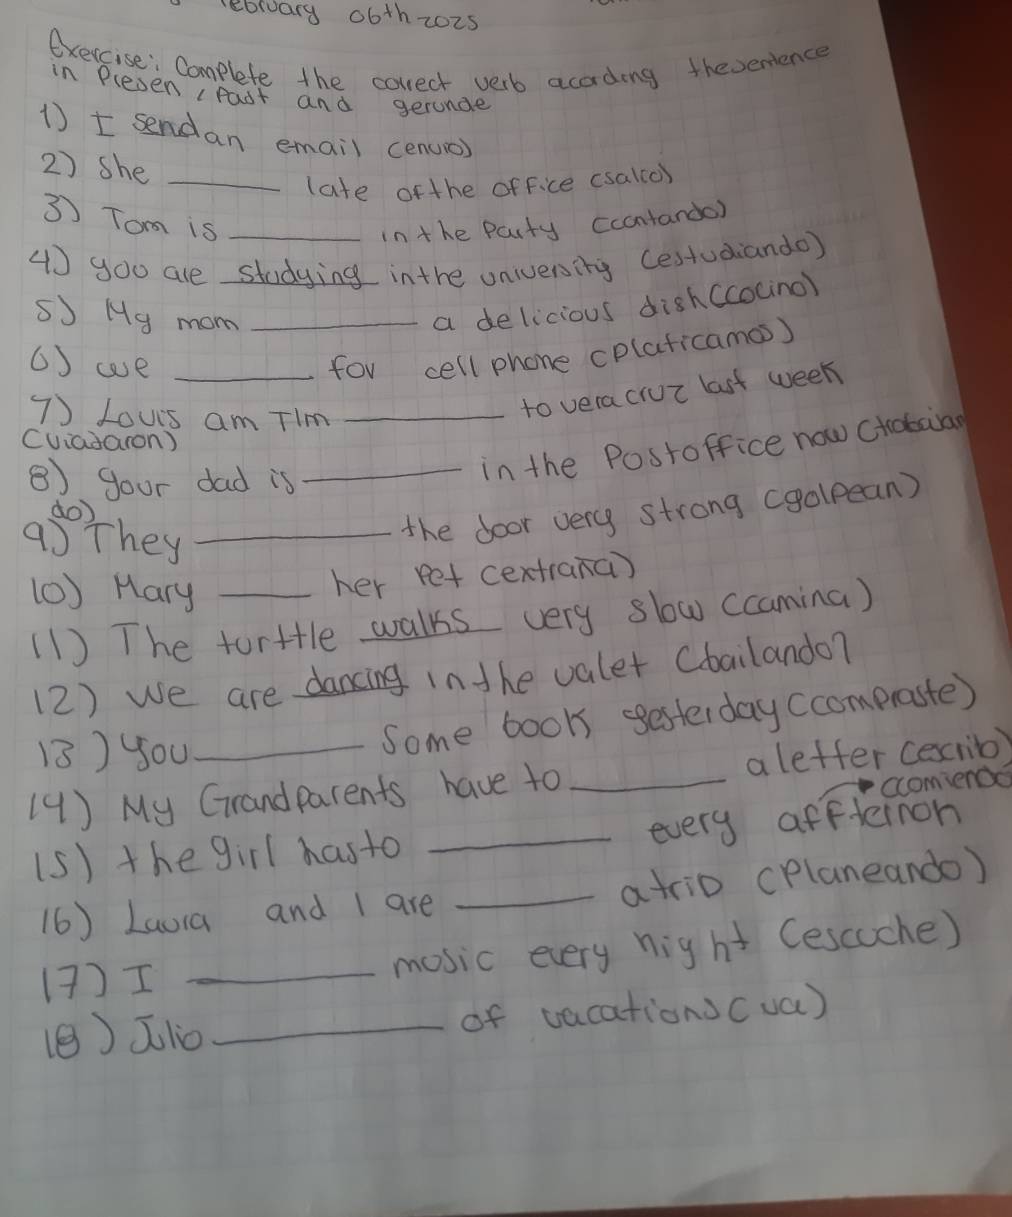 ebruary 06th 2025
Exercise: Complete the correct verb acording thesentence
in Presen, Past and gerunde
1) I send an email (envio)
2) She ______ late of the office (salio)
3) Tom is ______ in the Party (cantando)
4) you are studying in the university (estudiando)
5) My mom ______ a delicious dish (cocino)
6) we ______ for cell phone (platicamos)
7) Louis am Tim ______ to veracruz last week
(viajaron)
8) your dad is ______ in the Postoffice now (trabajan
do)
9) They ______ the door very strong (golpean)
10) Mary ______ her Pet (extraña)
11) The turttle walks very slow (camina)
12) We are dancing in the valet (bailando)
13) you ______ Some book yesterday (compraste)
14) My Grandparents have to ______ a letter (escrib)
15) the girl has to ______ every affternon (comiendo
16) Laura and I are ______ a trip (Planeando)
17) I ______ music every night (escuche)
18) Julio ______ of vacations (va)